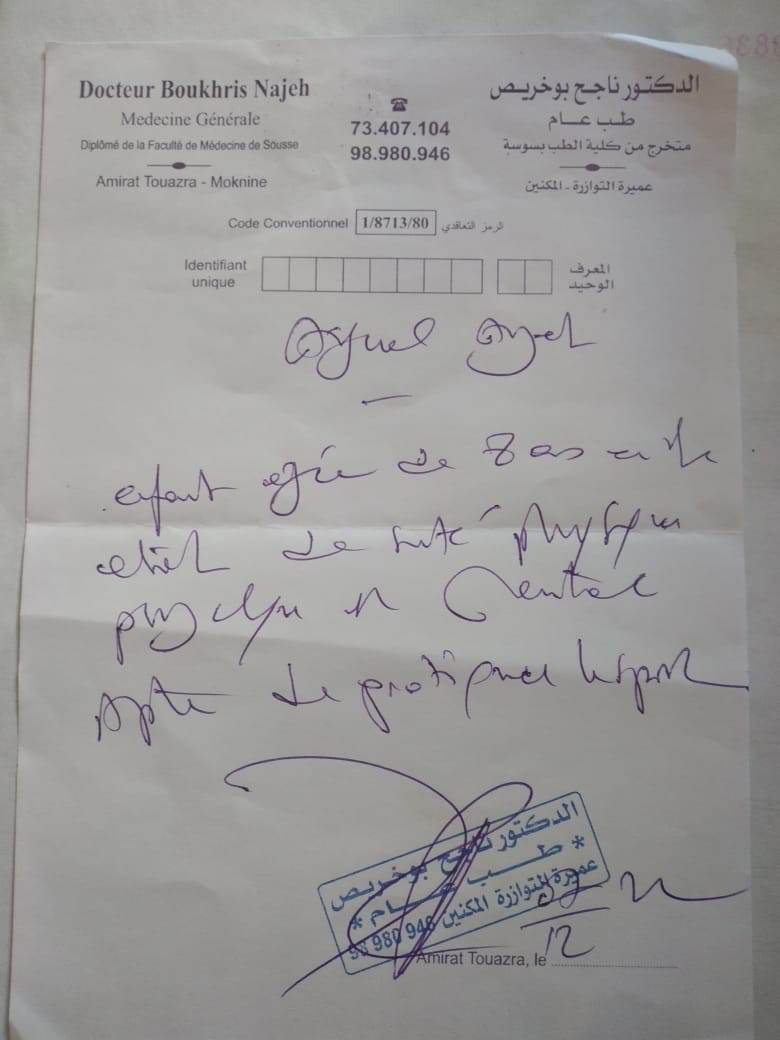 Docteur Boukhris Najeh
Medecine Générale
Diplômé de la Faculté de Médecine de Sousse
Amirat Touazra - Moknine
73.407.104
98.980.946
الدكتور ناجح بوخريص
طب عام
متخرج من كلية الطب بسوسة
عميرة التوازرة - المكنين
Code Conventionnel 1/8713/80 الرمز التعاقدي
Identifiant unique المعرف الوحيد
enfant agée de 8 ans
etat de santé physique
psychique et mental
apte de pratiquer le sport
الدكتور ناجح بوخريص
* طب عام *
عميرة التوازرة المكنين 98 980 946
Amirat Touazra, le
12